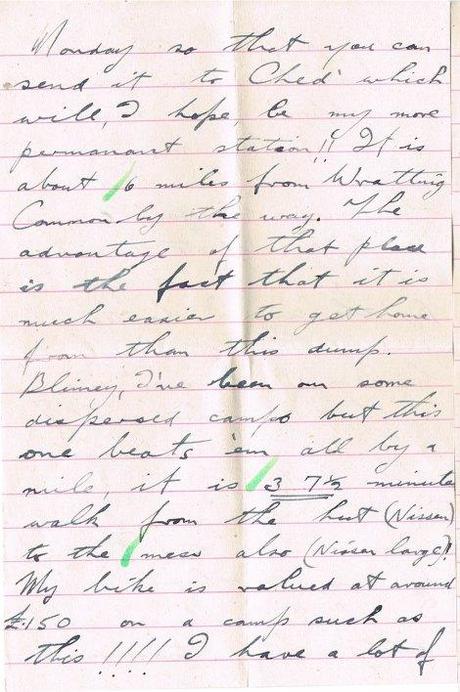 Monday so that you can
send it to Ched' which
will, I hope, be my more
permanant station!! It is
about 6 miles from Wratting
Common by the way. The
advantage of that place
is the fact that it is
much easier to get home
from than this dump.
Blimey, I've been on some
dispersed camps but this
one beats 'em all by a
mile, it is 37½ minute
walk from the hut (Nissen)
to the mess also (Nissen large)!
My bike is valued at around
£150 on a camp such as
this !!!! I have a lot of